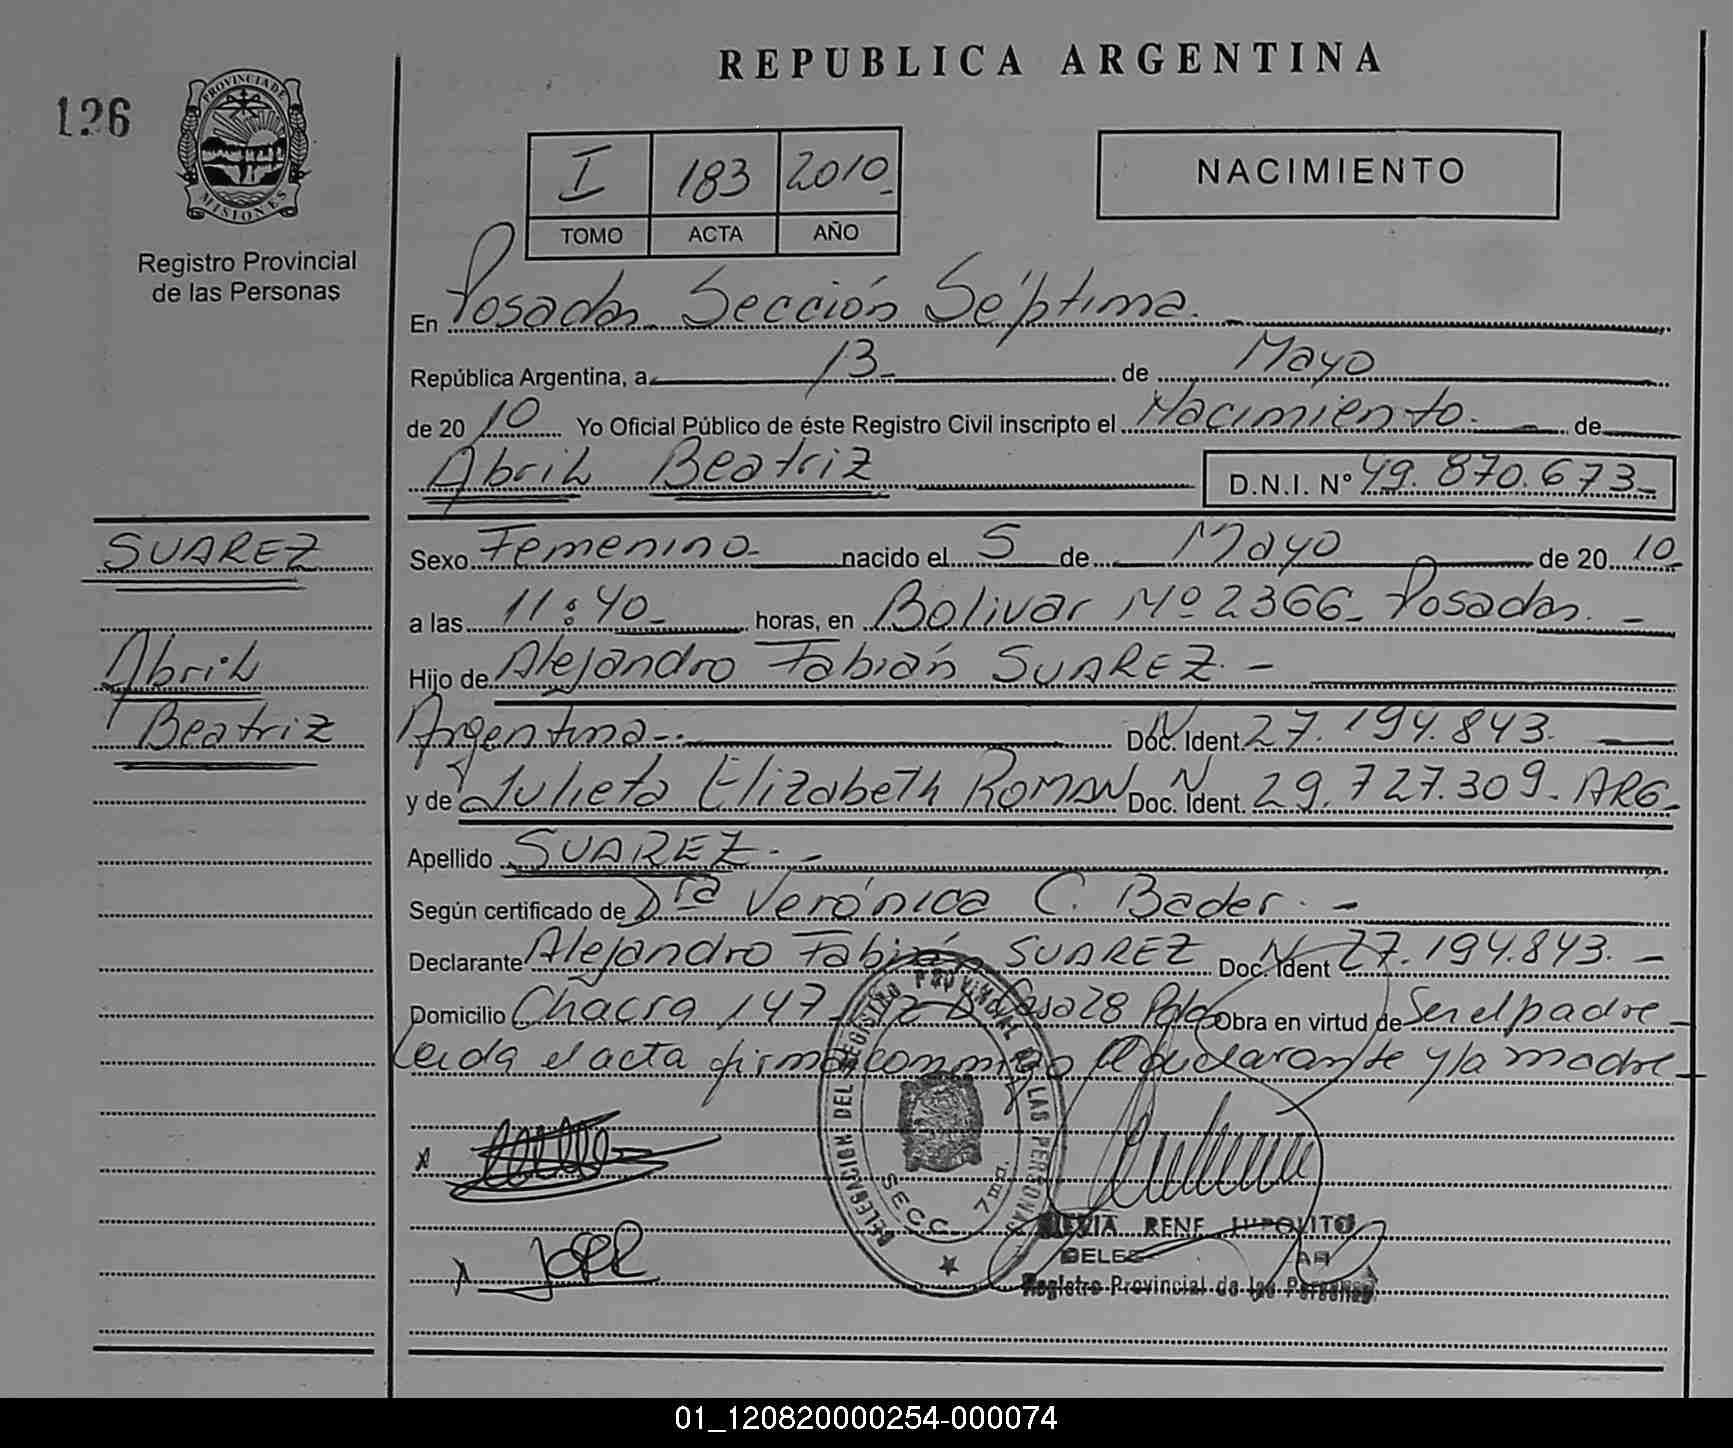 REPUBLICA ARGENTINA
126
PROVINCIA DE
MISIONES
Registro Provincial
de las Personas
I 183 2010
TOMO ACTA AÑO
NACIMIENTO
En Posadas Sección Séptima.
República Argentina, a 13 de Mayo
de 20 10 Yo Oficial Público de éste Registro Civil inscripto el Nacimiento de
Abril Beatriz D.N.I. N° 49.870.673
SUAREZ
Abril
Beatriz
Sexo Femenino nacido el 5 de Mayo de 20 10
a las 11:40 horas, en Bolivar Nº 2366 Posadas.
Hijo de Alejandro Fabián SUAREZ.
Argentina Doc. Ident. N 27.194.843.
y de Julieta Elizabeth ROMAN Doc. Ident. N 29.727.309 ARG
Apellido SUAREZ.
Según certificado de Dra Verónica C. Bader.
Declarante Alejandro Fabián SUAREZ Doc. Ident N 27.194.843.
Domicilio Chacra 147 Casa 28 Obra en virtud de Ser el padre
Leida el acta firma conmigo el declarante y la madre
DELEGACION DEL REGISTRO PROVINCIAL DE LAS PERSONAS
SECC 7ma.
RENE HIPOLITO
Registro Provincial de las Personas
01_120820000254-000074